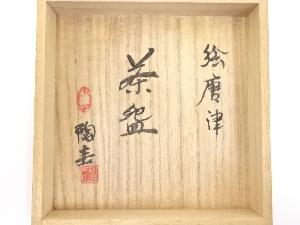 絵唐津
茶盌
陶春